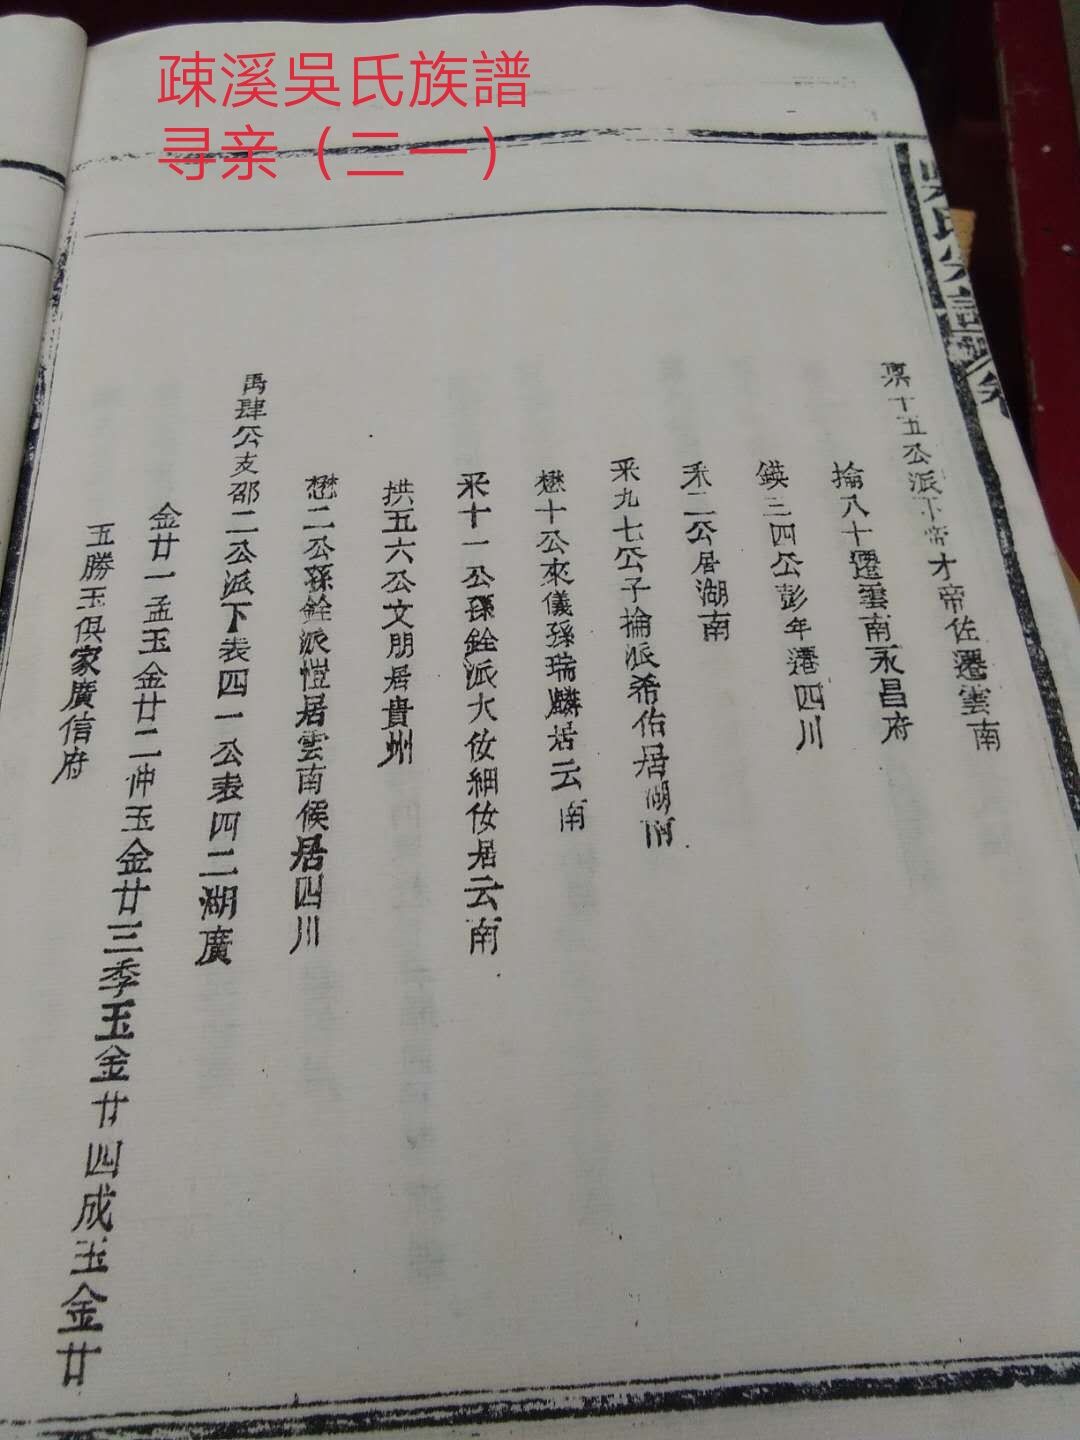 疎溪吳氏族譜
寻亲（二一）
吳氏宗譜 卷
十五公派下帝才帝佐遷雲南
掄八十遷雲南永昌府
鍈三四公彭年遷四川
釆二公居湖南
釆九七公子掄派希佑居湖南
懋十公來儀孫瑞麟居云南
釆十一公孫銓派大伩細伩居云南
拱五六公文朋居貴州
懋二公孫銓派愷居雲南候居四川
禹肆公支邵二公派下表四一公表四二湖廣
金廿一孟玉金廿二仲玉金廿三季玉金廿四成玉金廿
五勝玉俱家廣信府